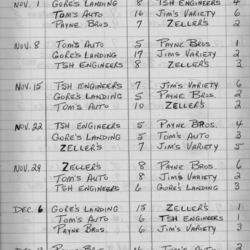 NOV. 1 GORE'S LANDING 8 TSH ENGINEERS 4
TOM'S AUTO 16 JIM'S VARIETY 6
PAYNE BROS. 7 ZELLER'S
NOV. 8 TOM'S AUTO 5 PAYNE BROS. 1
GORE'S LANDING 17 JIM'S VARIETY 2
TSH ENGINEERS 8 ZELLER'S 3
NOV. 15 TSH ENGINEERS 7 JIM'S VARIETY
GORE'S LANDING 5 PAYNE BROS. 2
TOM'S AUTO 10 ZELLER'S 2
NOV. 22 TSH ENGINEERS 5 PAYNE BROS. 4
GORE'S LANDING 5 TOM'S AUTO 3
ZELLER'S 7 JIM'S VARIETY 5
NOV. 29 ZELLER'S 8 PAYNE BROS. 6
TOM'S AUTO 8 JIM'S VARIETY 2
TSH ENGINEERS 6 GORE'S LANDING 3
DEC. 6 GORE'S LANDING 15 ZELLER'S 1
TOM'S AUTO 6 TSH ENGINEERS 1
PAYNE BROS. 6 JIM'S VARIETY 3